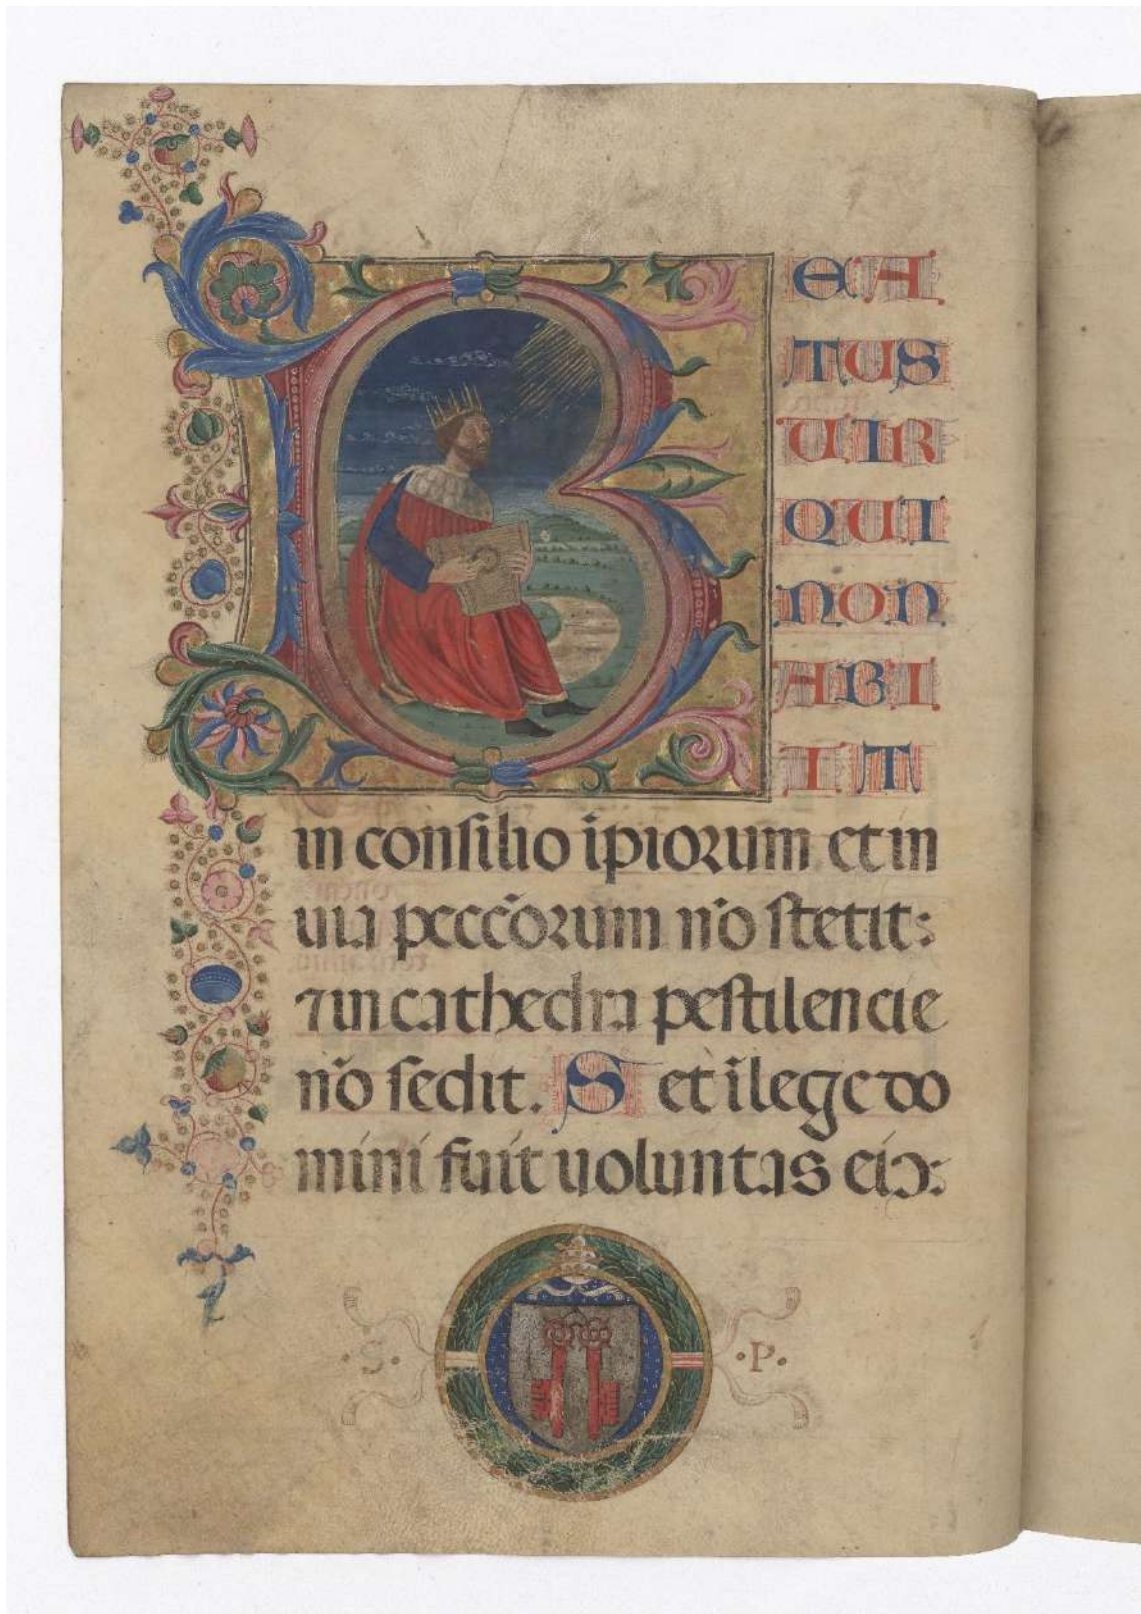 B EA
TUS
UIR
QUI
NON
ABI
IT
in consilio īpiorum et in
uia peccōrum nō stetit:
⁊ in cathedra pestilencie
nō sedit. S et ī lege do
mini fuit uoluntas eiꝰ:
·S· ·P·